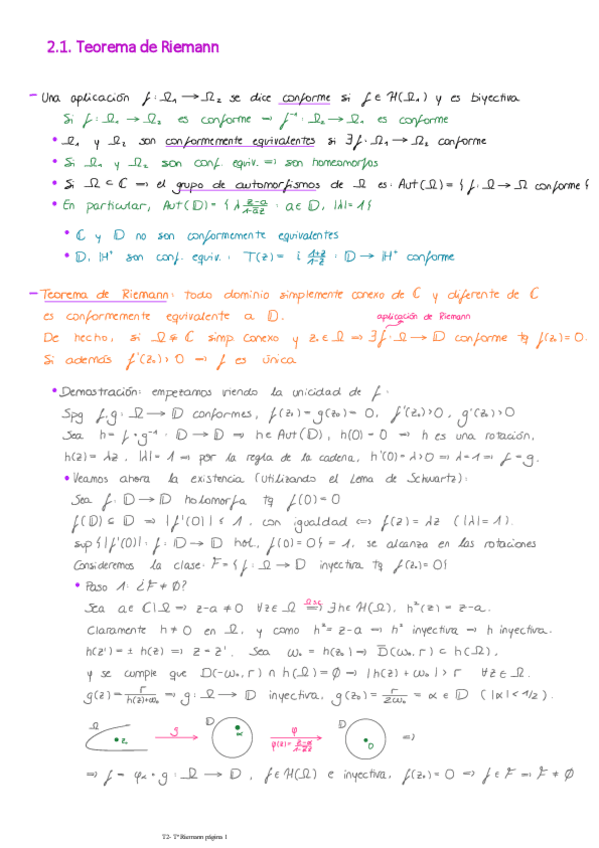 2.1. Teorema de Riemann
- Una aplicación f: Ω₁ → Ω₂ se dice conforme si f ∈ H(Ω₁) y es biyectiva
Si f: Ω₁ → Ω₂ es conforme ⇒ f⁻¹: Ω₂ → Ω₁ es conforme
• Ω₁ y Ω₂ son conformemente equivalentes si ∃f: Ω₁ → Ω₂ conforme
• Si Ω₁ y Ω₂ son conf. equiv. ⇒ son homeomorfos
• Si Ω ⊂ ℂ ⇒ el grupo de automorfismos de Ω es: Aut(Ω) = {f: Ω → Ω conforme}
• En particular, Aut(𝔻) = {λ (z-a)/(1-āz) : a ∈ 𝔻, |λ|=1}
• ℂ y 𝔻 no son conformemente equivalentes
• 𝔻, ℍ⁺ son conf. equiv.: T(z) = i (1+z)/(1-z) : 𝔻 → ℍ⁺ conforme
- Teorema de Riemann: todo dominio simplemente conexo de ℂ y diferente de ℂ
es conformemente equivalente a 𝔻.
aplicación de Riemann
De hecho, si Ω ⊊ ℂ simp. conexo y z₀ ∈ Ω ⇒ ∃f: Ω → 𝔻 conforme tq f(z₀) = 0.
Si además f'(z₀) > 0 ⇒ f es única
• Demostración: empezamos viendo la unicidad de f:
Spg f,g: Ω → 𝔻 conformes, f(z₀) = g(z₀) = 0, f'(z₀) > 0, g'(z₀) > 0
Sea h = f∘g⁻¹ : 𝔻 → 𝔻 ⇒ h ∈ Aut(𝔻), h(0) = 0 ⇒ h es una rotación,
h(z) = λz, |λ| = 1 ⇒ por la regla de la cadena, h'(0) = λ > 0 ⇒ λ = 1 ⇒ f = g.
• Veamos ahora la existencia (utilizando el Lema de Schwartz):
Sea f: 𝔻 → 𝔻 holomorfa tq f(0) = 0
f(𝔻) ⊆ 𝔻 ⇒ |f'(0)| ≤ 1, con igualdad ⇔ f(z) = λz (|λ| = 1).
sup{|f'(0)| : f: 𝔻 → 𝔻 hol, f(0) = 0} = 1, se alcanza en las rotaciones
Consideremos la clase: F = {f: Ω → 𝔻 inyectiva tq f(z₀) = 0}
• Paso 1: ¿F ≠ ∅?
Sea a ∈ ℂ\Ω ⇒ z-a ≠ 0 ∀z ∈ Ω ⇒ (Ω sc) ∃h ∈ H(Ω), h²(z) = z-a.
Claramente h ≠ 0 en Ω, y como h² = z-a ⇒ h² inyectiva ⇒ h inyectiva.
h(z') = ± h(z) ⇒ z = z'. Sea ω₀ = h(z₀) ⇒ D̄(ω₀, r) ⊂ h(Ω),
y se cumple que D(-ω₀, r) ∩ h(Ω) = ∅ ⇒ |h(z) + ω₀| > r ∀z ∈ Ω.
g(z) = r/(h(z)+ω₀) ⇒ g: Ω → 𝔻 inyectiva, g(z₀) = r/(2ω₀) = α ∈ 𝔻 (|α| < 1/2).
Ω •z₀ g 𝔻 •α φ φ(z) = (z-α)/(1-ᾱz) 𝔻 •0 ⇒
⇒ f = φα∘g : Ω → 𝔻, f ∈ H(Ω) e inyectiva, f(z₀) = 0 ⇒ f ∈ F ⇒ F ≠ ∅
T2- Tª Riemann página 1